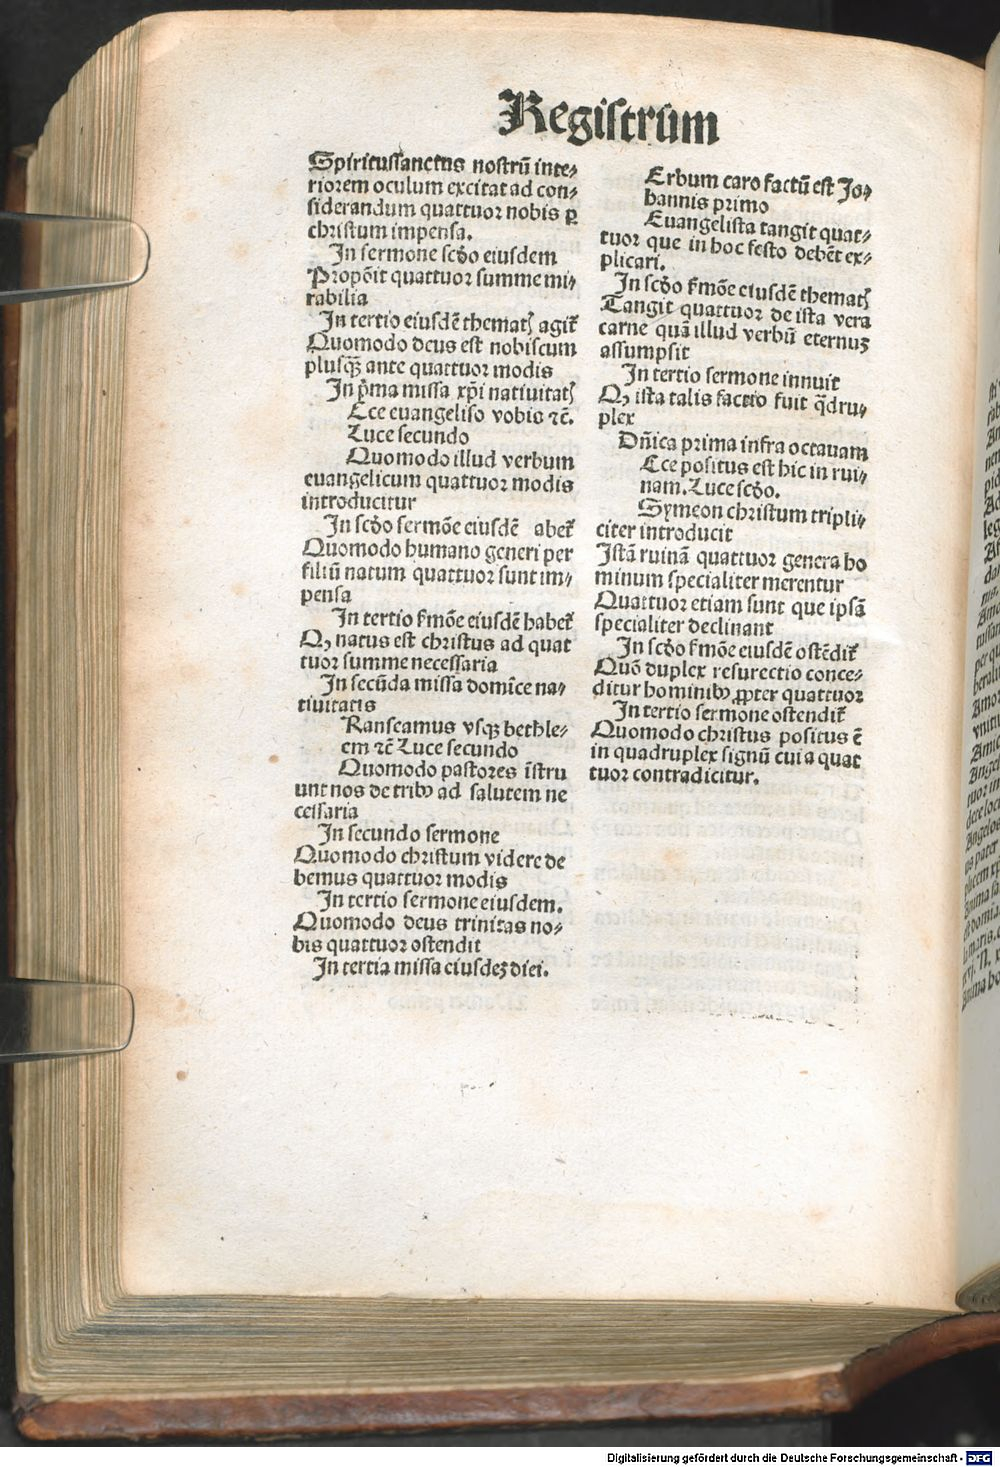 Registrum
Spiritussanctus nostrū inte⸗
riorem oculum excitat ad con⸗
siderandum quattuor nobis ꝑ
christum impensa.
In sermone scđo eiusdem
Propōit quattuor summe mi⸗
rabilia
In tertio eiusdē thematꝭ agit᷑
Quomodo deus est nobiscum
plusq̄ꝫ ante quattuor modis
In p̄ma missa xp̄i nativitatꝭ
Cce euangeliso vobis ⁊c̄.
Luce secundo
Quomodo illud verbum
euangelicum quattuor modis
introducitur
In scđo sermōe eiusdē abet᷑
Quomodo humano generi per
filiū natum quattuor sunt im⸗
pensa
In tertio ẜmōe eiusdē habet᷑
Qꝫ natus est christus ad quat
tuor summe necessaria
In secūda missa domīce na⸗
tiuitatis
Ranseamus vsqꝫ bethle⸗
em ⁊c̄ Luce secundo
Quomodo pastores īstru
unt nos de tribꝰ ad salutem ne
cessaria
In secundo sermone
Quomodo christum videre de
bemus quattuor modis
In tertio sermone eiusdem.
Quomodo deus trinitas no⸗
bis quattuor ostendit
In tertia missa eiusdeꝫ diei.
Erbum caro factū est Jo⸗
hannis primo
Euangelista tangit quat⸗
tuor que in hoc festo debēt ex⸗
plicari.
In scđo ẜmōe eiusdē thematꝭ
Tangit quattuor de ista vera
carne quā illud verbū eternuꝫ
assumpsit
In tertio sermone innuit
Qꝫ ista talis factio fuit q̄dru⸗
plex
Dn̄ica prima infra octauam
Cce positus est hic in rui⸗
nam. Luce scđo.
Symeon christum tripli⸗
citer introducit
Istā ruinā quattuor genera ho
minum specialiter merentur
Quattuor etiam sunt que ipsā
specialiter declinant
In scđo ẜmōe eiusdē ostēdit᷑
Quō duplex resurectio conce⸗
ditur hominibꝰ ꝓpter quattuor
In tertio sermone ostendit᷑
Quomodo christus positus ē
in quadruplex signū cui a quat
tuor contradicitur.
Digitalisierung gefördert durch die Deutsche Forschungsgemeinschaft - DFG